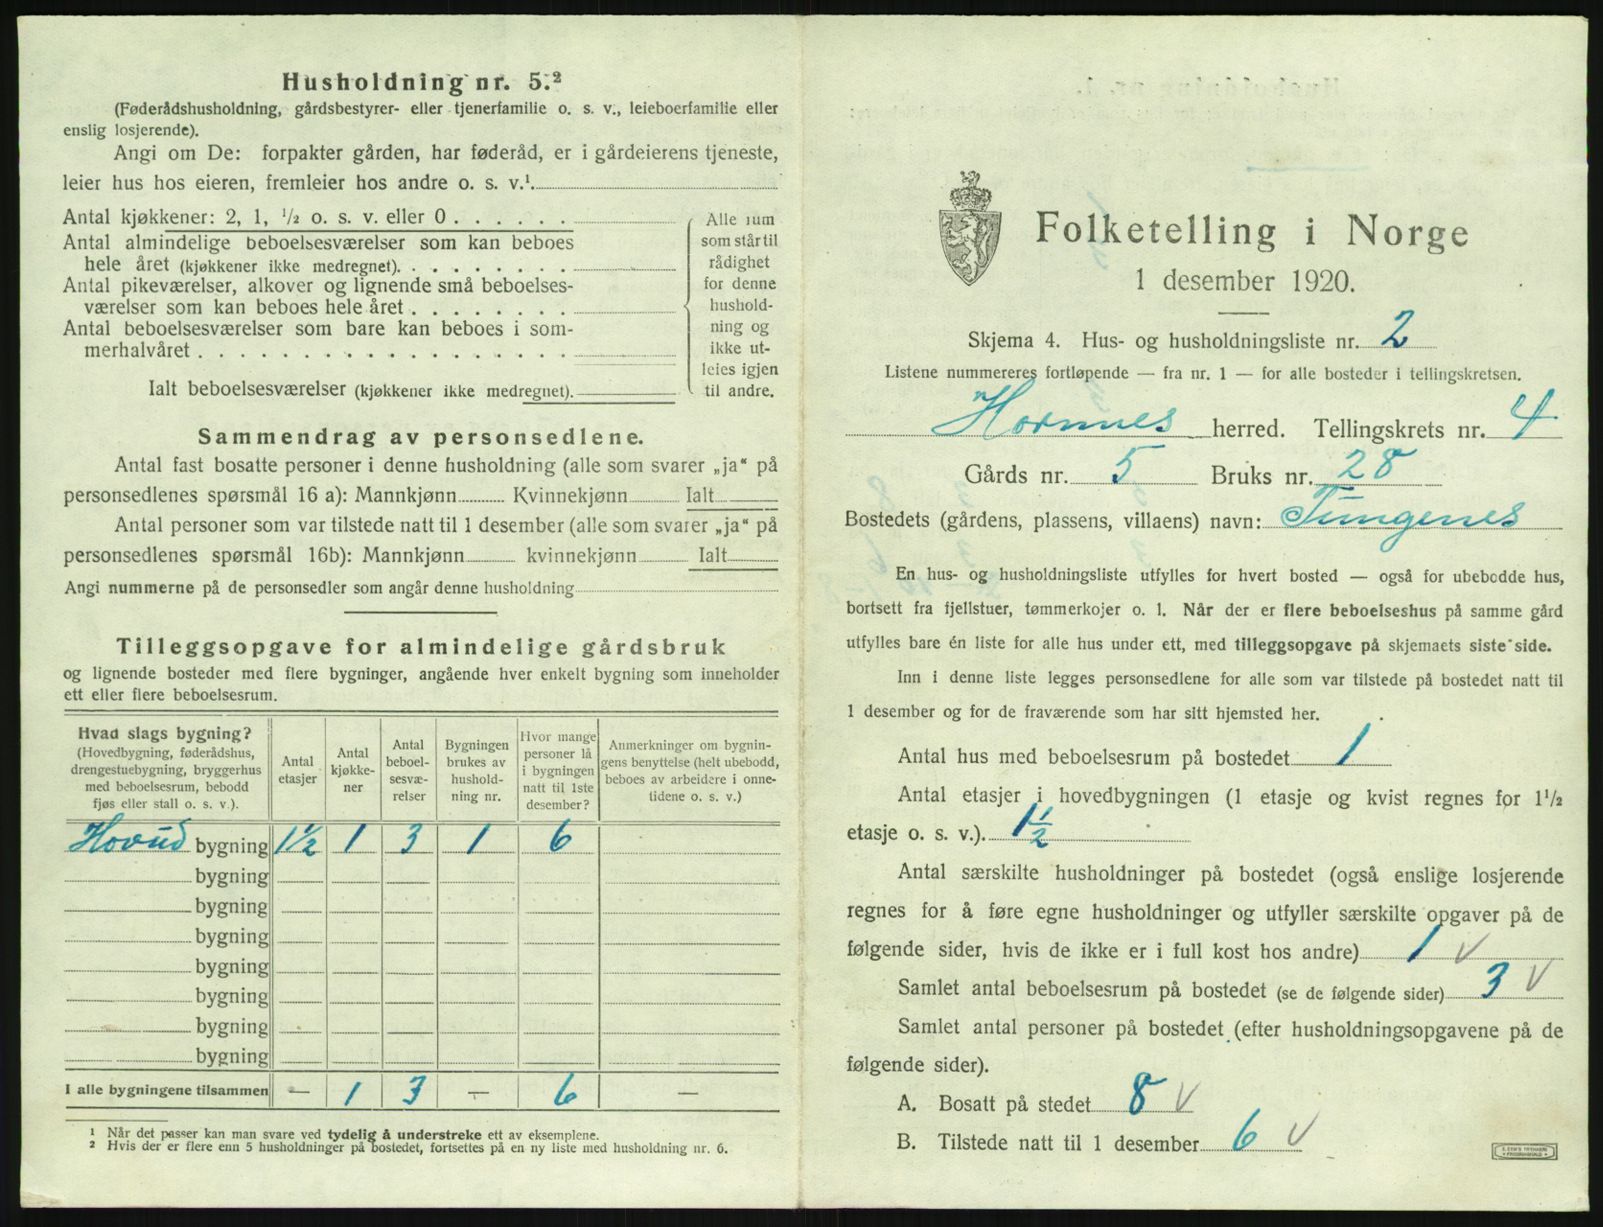 Husholdning nr. 5.²
(Føderådshusholdning, gårdsbestyrer- eller tjenerfamilie o. s. v., leieboerfamilie eller
enslig losjerende).
Angi om De: forpakter gården, har føderåd, er i gårdeierens tjeneste,
leier hus hos eieren, fremleier hos andre o. s. v.¹
Antal kjøkkener: 2, 1, ½ o. s. v. eller 0
Antal almindelige beboelsesværelser som kan beboes
hele året (kjøkkener ikke medregnet).
Antal pikeværelser, alkover og lignende små beboelses-
værelser som kan beboes hele året
Antal beboelsesværelser som bare kan beboes i som-
merhalvåret
Ialt beboelsesværelser (kjøkkener ikke medregnet).
Alle rum
som står til
rådighet
for denne
hushold-
ning og
ikke ut-
leies igjen
til andre.
Sammendrag av personsedlene.
Antal fast bosatte personer i denne husholdning (alle som svarer „ja“ på
personsedlenes spørsmål 16 a): Mannkjønn Kvinnekjønn Ialt
Antal personer som var tilstede natt til 1 desember (alle som svarer „ja“ på
personsedlenes spørsmål 16b): Mannkjønn kvinnekjønn Ialt
Angi nummerne på de personsedler som angår denne husholdning
Tilleggsopgave for almindelige gårdsbruk
og lignende bosteder med flere bygninger, angående hver enkelt bygning som inneholder
ett eller flere beboelsesrum.
Hvad slags bygning?
(Hovedbygning, føderådshus,
drengestuebygning, bryggerhus
med beboelsesrum, bebodd
fjøs eller stall o. s. v.).
Antal
etasjer
Antal
kjøkke-
ner
Antal
beboel-
sesvæ-
relser
Bygningen
brukes av
hushold-
ning nr.
Hvor mange
personer lå
i bygningen
natt til 1ste
desember?
Anmerkninger om bygnin-
gens benyttelse (helt ubebodd,
beboes av arbeidere i onne-
tidene o. s. v.)
Hovud bygning 1½ 1 3 1 6
bygning
bygning
bygning
bygning
bygning
bygning
bygning
I alle bygningene tilsammen — 1 3 — 6 —
¹ Når det passer kan man svare ved tydelig å understreke ett av eksemplene.
² Hvis der er flere enn 5 husholdninger på bostedet, fortsettes på en ny liste med husholdning nr. 6.
Folketelling i Norge
1 desember 1920.
Skjema 4. Hus- og husholdningsliste nr. 2
Listene nummereres fortløpende — fra nr. 1 — for alle bosteder i tellingskretsen.
Hornnes herred. Tellingskrets nr. 4
Gårds nr. 5 Bruks nr. 28
Bostedets (gårdens, plassens, villaens) navn: Tungenes
En hus- og husholdningsliste utfylles for hvert bosted — også for ubebodde hus,
bortsett fra fjellstuer, tømmerkojer o. l. Når der er flere beboelseshus på samme gård
utfylles bare én liste for alle hus under ett, med tilleggsopgave på skjemaets siste side.
Inn i denne liste legges personsedlene for alle som var tilstede på bostedet natt til
1 desember og for de fraværende som har sitt hjemsted her.
Antal hus med beboelsesrum på bostedet 1
Antal etasjer i hovedbygningen (1 etasje og kvist regnes for 1½
etasje o. s. v.). 1½
Antal særskilte husholdninger på bostedet (også enslige losjerende
regnes for å føre egne husholdninger og utfyller særskilte opgaver på de
følgende sider, hvis de ikke er i full kost hos andre) 1 v
Samlet antal beboelsesrum på bostedet (se de følgende sider) 3 v
Samlet antal personer på bostedet (efter husholdningsopgavene på de
følgende sider).
A. Bosatt på stedet 8 v
B. Tilstede natt til 1 desember 6 v